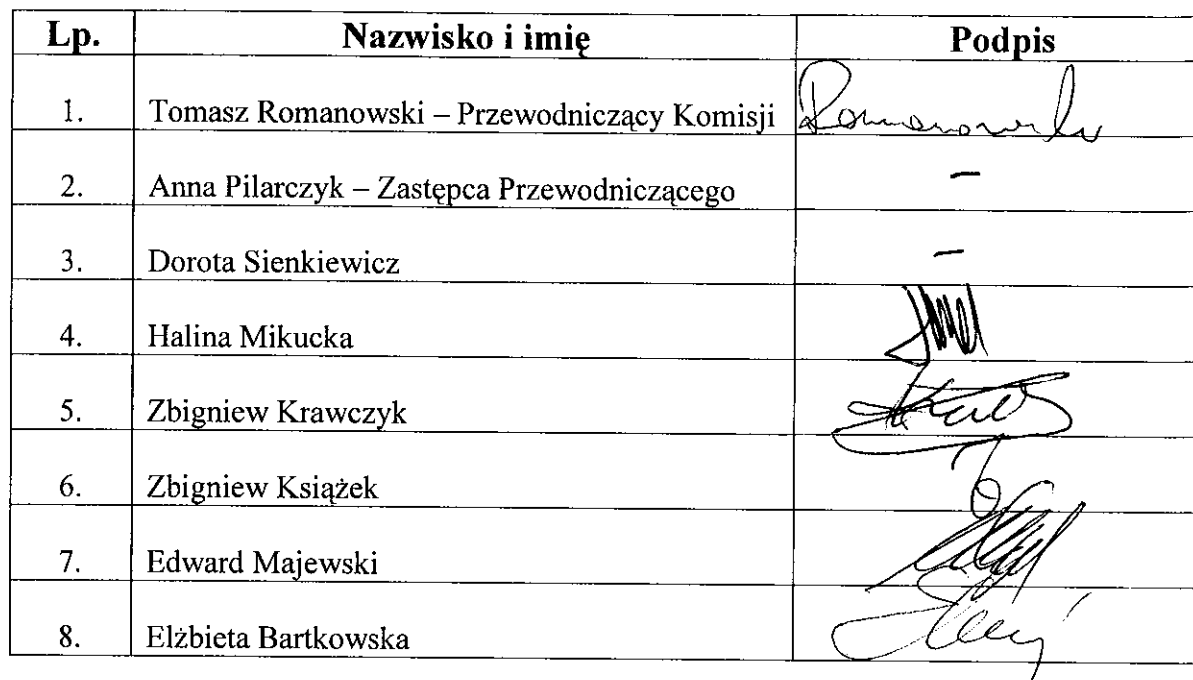 Lp. Nazwisko i imię Podpis
1. Tomasz Romanowski – Przewodniczący Komisji Romanowski
2. Anna Pilarczyk – Zastępca Przewodniczącego –
3. Dorota Sienkiewicz –
4. Halina Mikucka
5. Zbigniew Krawczyk
6. Zbigniew Książek
7. Edward Majewski
8. Elżbieta Bartkowska